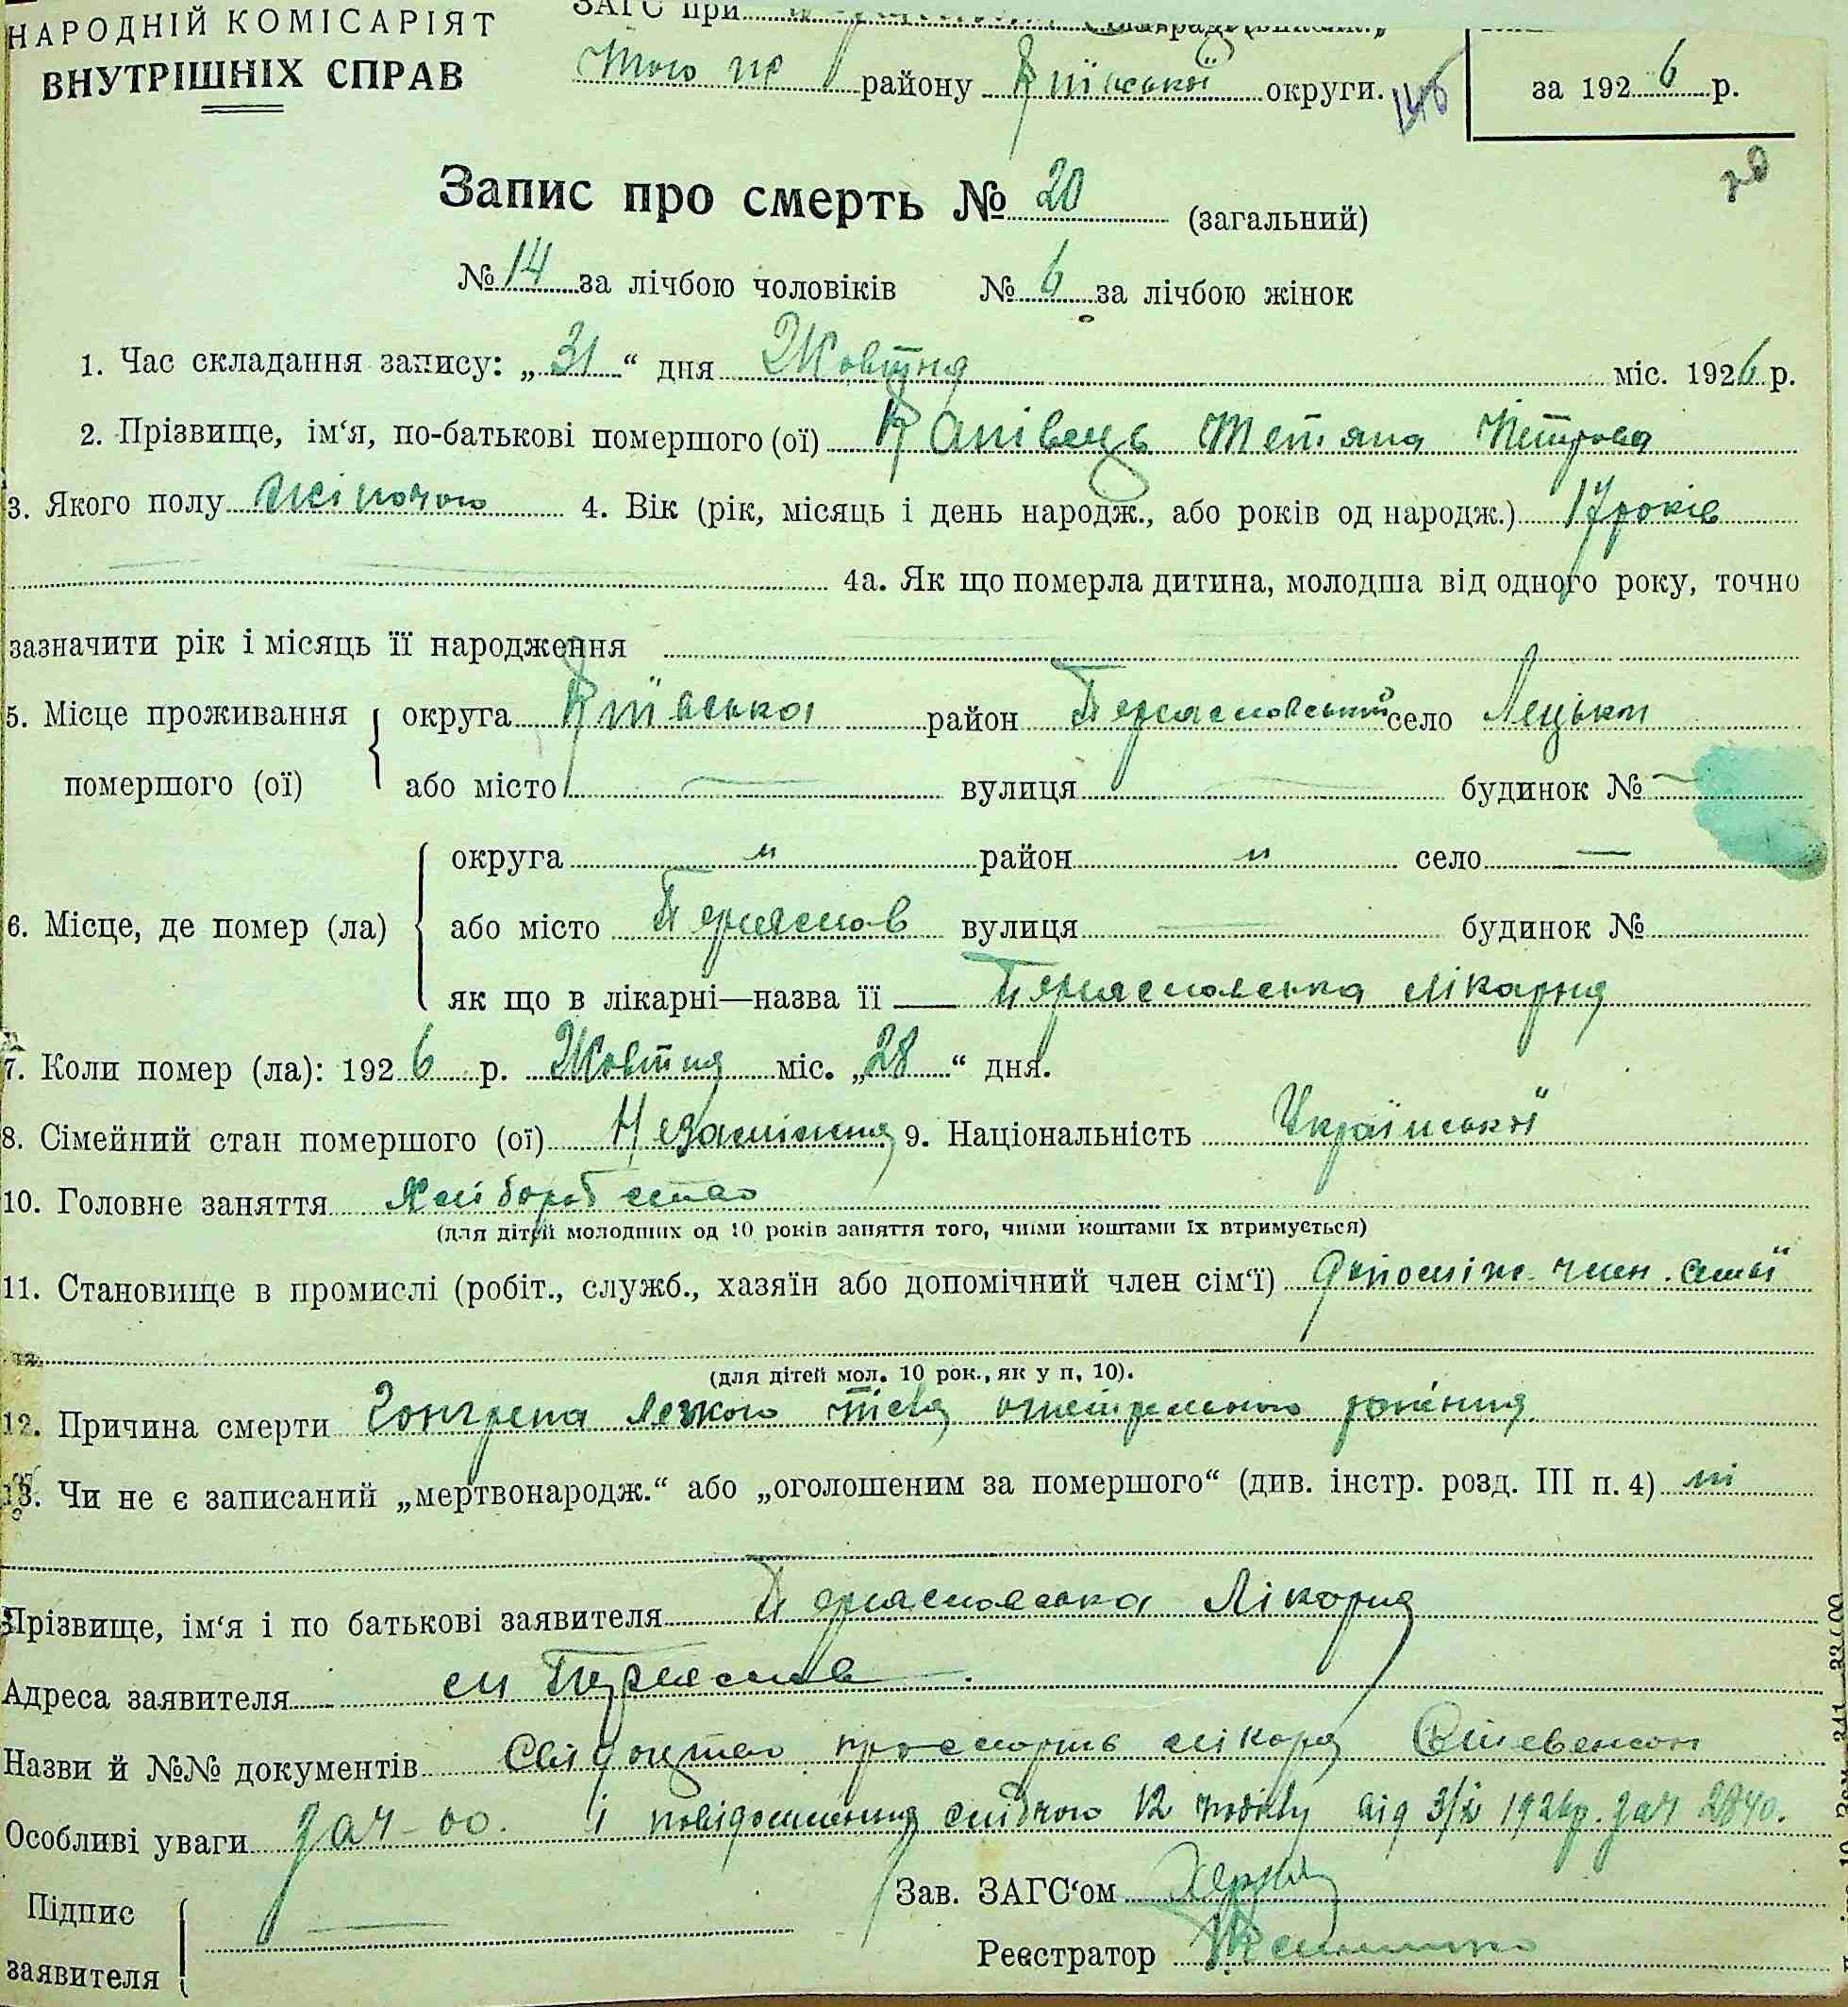 НАРОДНІЙ КОМІСАРІЯТ
ВНУТРІШНІХ СПРАВ
ЗАГС при
Того ж району Київської округи. 146
за 1926 р.
Запис про смерть № 20 (загальний)
№ 14 за лічбою чоловіків № 6 за лічбою жінок
1. Час складання запису: „31“ дня Жовтня міс. 1926 р.
2. Прізвище, ім‘я, по-батькові помершого (ої) Канівець Тетяна Петрова
3. Якого полу жіночого 4. Вік (рік, місяць і день народж., або років од народж.) 17 років
4а. Як що померла дитина, молодша від одного року, точно
зазначити рік і місяць її народження
5. Місце проживання помершого (ої) округа Київська район Переяславський село
або місто — вулиця — будинок № —
6. Місце, де помер (ла) округа „ район „ село —
або місто Переяслав вулиця — будинок №
як що в лікарні—назва її — Переяславська лікарня
7. Коли помер (ла): 1926 р. Жовтня міс. „28“ дня.
8. Сімейний стан помершого (ої) Незаміжня 9. Національність Української
10. Головне заняття Хліборобство
(для дітей молодших од 10 років заняття того, чиїми коштами їх втримується)
11. Становище в промислі (робіт., служб., хазяїн або допомічний член сім‘ї) допоміж. член. сімї
(для дітей мол. 10 рок., як у п. 10).
12. Причина смерти Гангрена легкого після
13. Чи не є записаний „мертвонародж.“ або „оголошеним за помершого“ (див. інстр. розд. III п. 4) ні
Прізвище, ім‘я і по батькові заявителя Переяславська Лікарня
Адреса заявителя м Переяслав
Назви й №№ документів Свідоцтво про смерть лікаря
Особливі уваги і повідомлення слідчого 12 від 1926р. 2840.
Підпис заявителя —
Зав. ЗАГС‘ом
Реєстратор